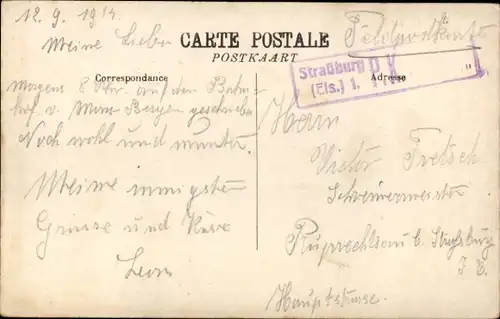 12. 9. 1914.
Feldpostkarte
Meine Lieben
CARTE POSTALE
POSTKAART
Correspondance
Adresse
Straßburg
(Els.) 1.
Morgens 8 Uhr. auf dem Bahn-
hof v. Mons Bergen geschrieben
Noch wohl und munter.
Meine innigsten
Grüsse und Küsse
Leon
Herrn
Victor Fretsch
Schreinermeister
Ruprechtsau b. Straßburg
i. E.
Hauptstrasse.